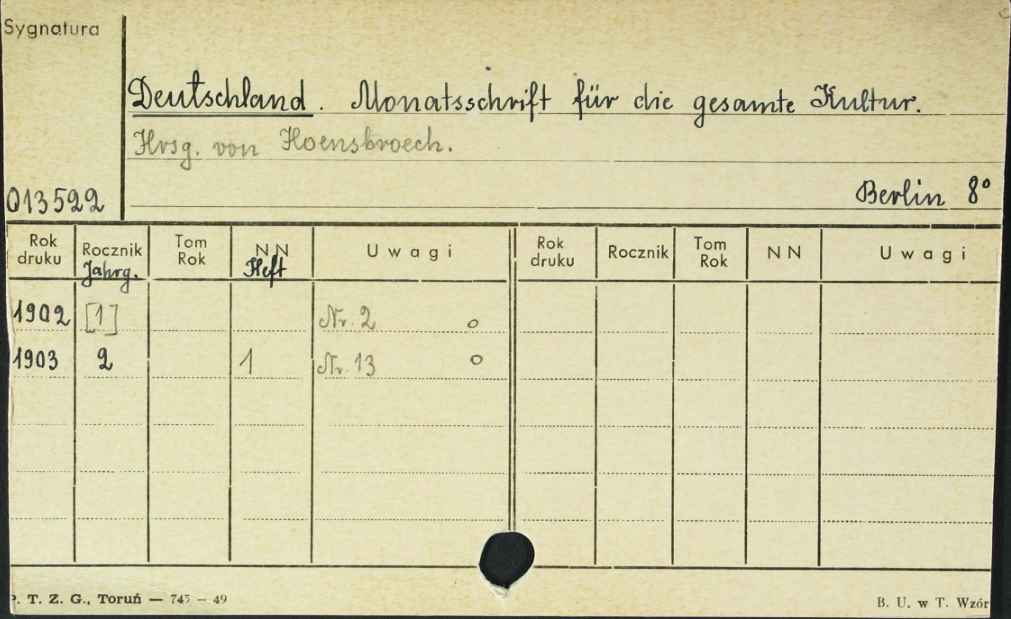 Sygnatura
Deutschland. Monatsschrift für die gesamte Kultur.
Hrsg. von Hoensbroech.
013522
Berlin 8°
Rok druku Rocznik Jahrg. Tom Rok NN Heft Uwagi Rok druku Rocznik Tom Rok NN Uwagi
1902 [1] Nr. 2 o
1903 2 1 Nr. 13 o
P. T. Z. G., Toruń — 745 — 49
B. U. w T. Wzór